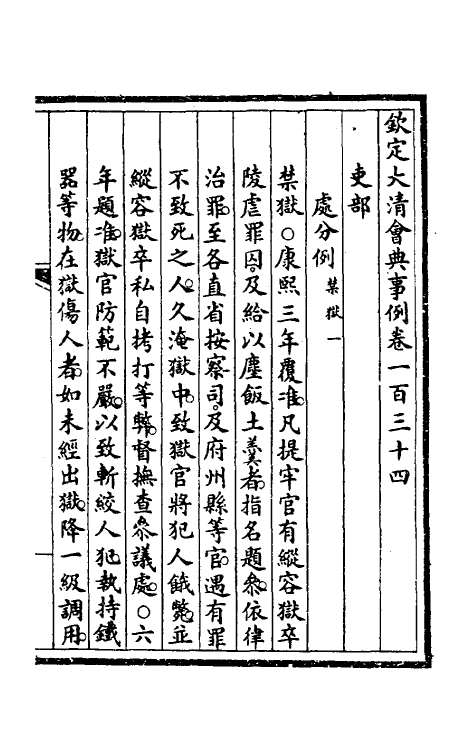 欽定大清會典事例卷一百三十四
吏部
處分例 禁獄一
禁獄○康熙三年覆准凡提牢官有縱容獄卒
陵虐罪囚及給以塵飯土羹者指名題參依律
治罪至各直省按察司及府州縣等官遇有罪
不致死之人久淹獄中致獄官將犯人餓斃並
縱容獄卒私自拷打等弊督撫查參議處○六
年題准獄官防範不嚴以致斬絞人犯執持鐵
器等物在獄傷人者如未經出獄降一級調用